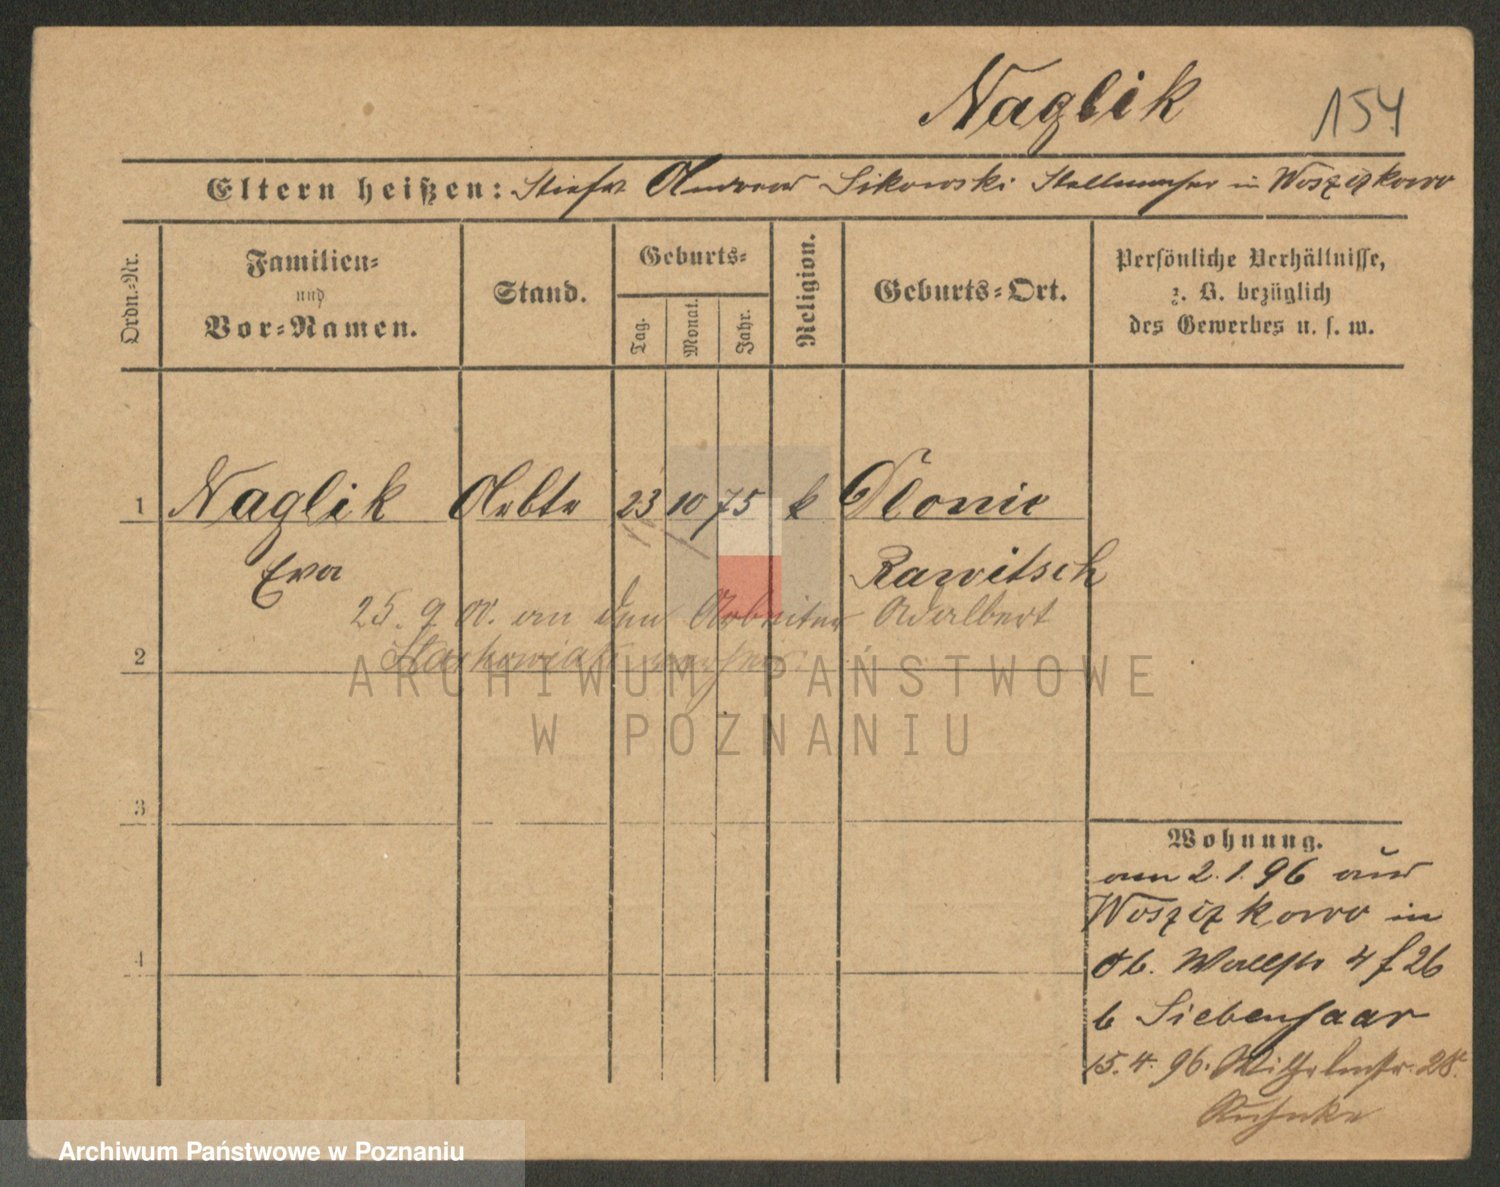 Naglik 154
Eltern heißen: Stiefvt Andreas Sikorski Stellmacher in Woszczkowo
Ordn.-Nr.
Familien-
und
Vor-Namen.
Stand.
Geburts-
Tag.
Monat.
Jahr.
Religion.
Geburts-Ort.
Persönliche Verhältnisse,
z. B. bezüglich
des Gewerbes u. s. w.
1 Naglik Arbtr 23 10 75 k Slonie
Eva Rawitsch
25. 9. 00. an den Arbeiter Adalbert
2
3
4
Wohnung.
am 2.1.96 aus
in
Ob. Wallstr 4 f 26
b Siebenhaar
15.4.96. Wilhelmstr. 28.
Ruhnke
ARCHIWUM PAŃSTWOWE
W POZNANIU
Archiwum Państwowe w Poznaniu